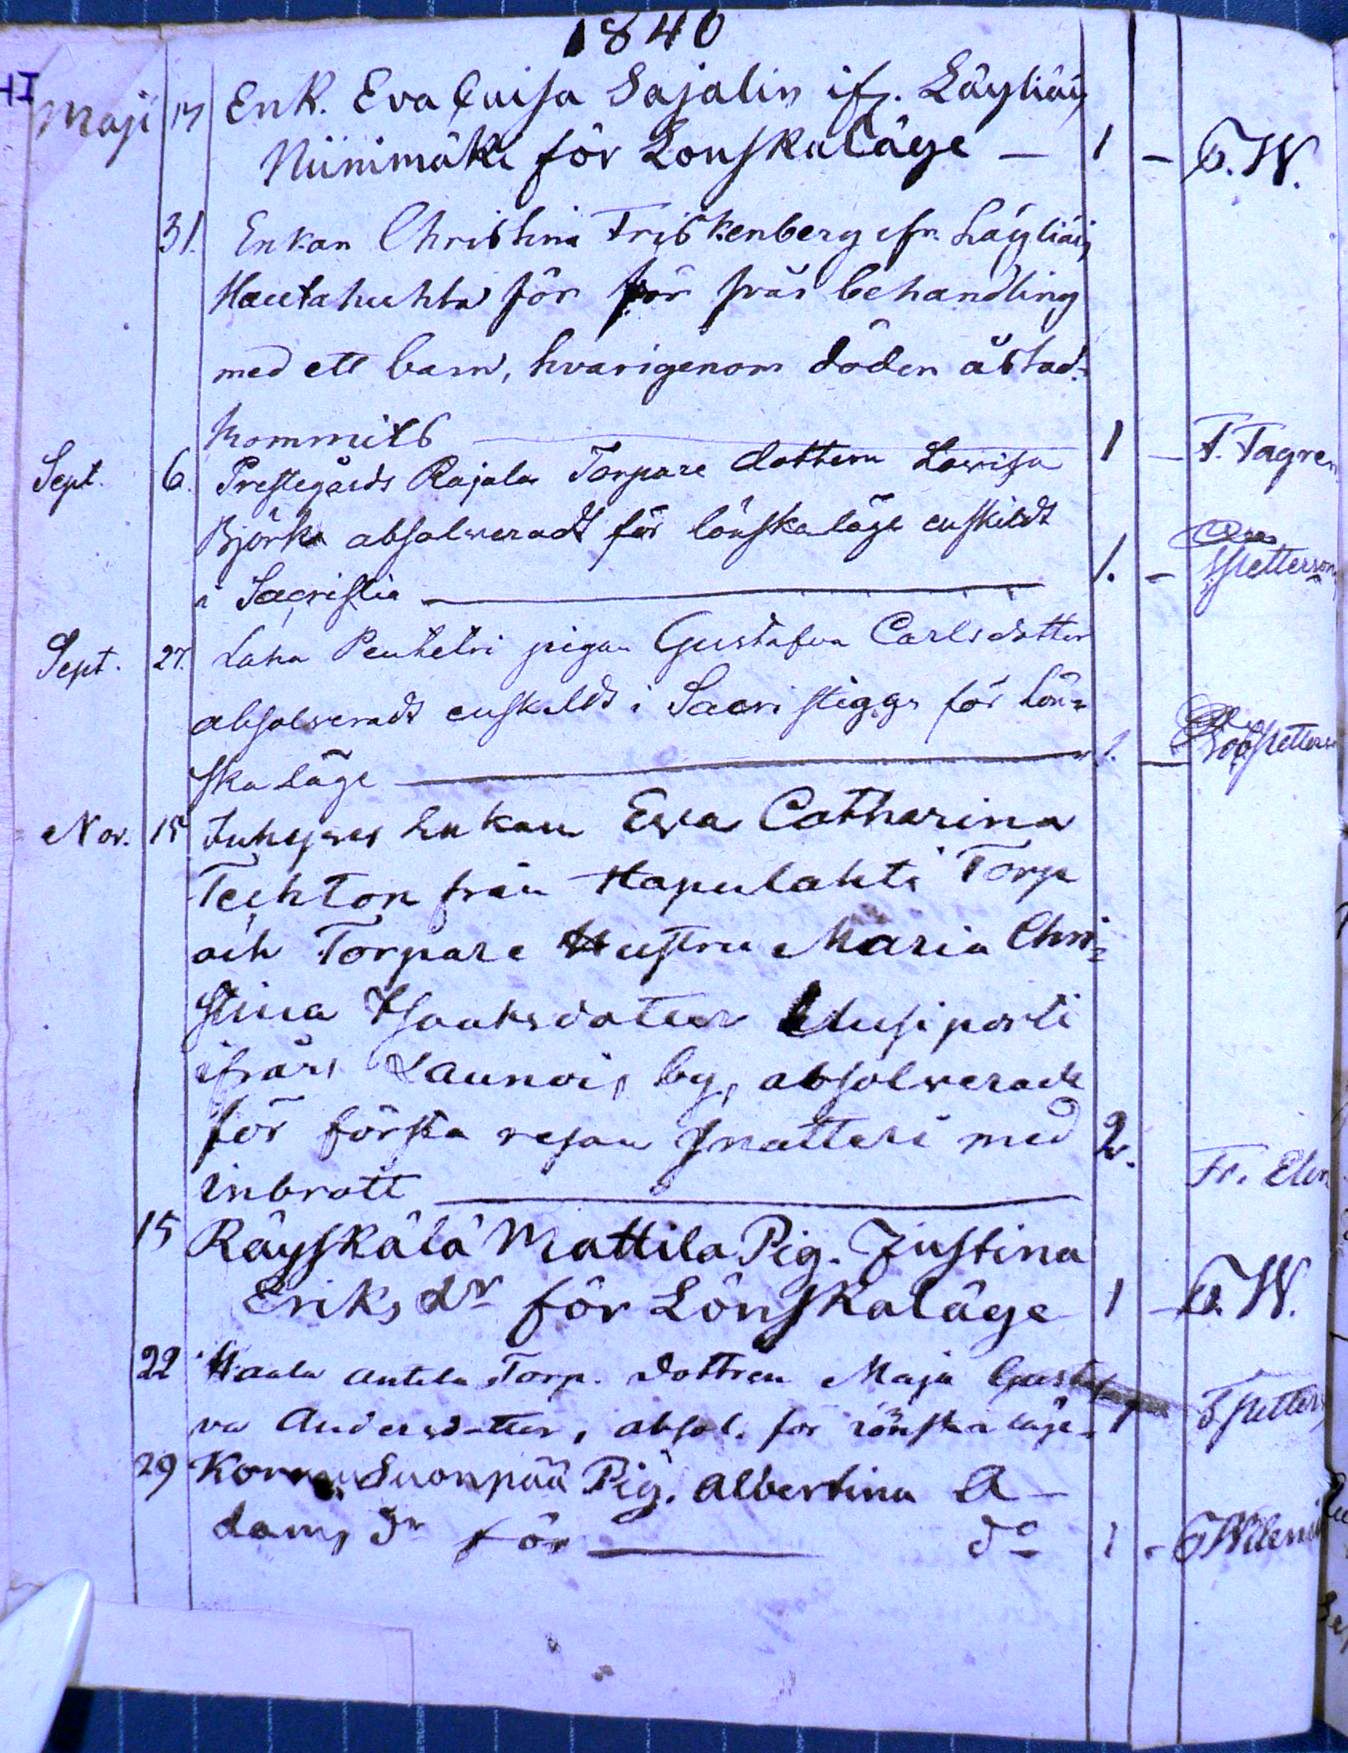 1840
Maji 17 Enk. Eva Luisa Sajalin ifr. Läyliäis
Niinimäki för Lönskaläge — 1 — T. W.
31. Enkan Christina Friskenberg ifr. Läyliäis
Hautahuhta för svår behandling
med ett barn, hvarigenom döden åstad-
kommits — 1 — F. Fagren
Sept. 6. Prestegårds Rajala Torpare dottern Lovisa
Björk absolveradt för lönskaläge enskildt
i Sacristia — 1. — Spetterson
Sept. 27. Laha Penkelri pigan Gustafva Carlsdotter
absolveradt enskildt i Sacristiggn för lön-
skaläge — 1. — Spetterson
Nov. 15 Enkan Eva Catharina
Techton från Hapulahti Torp
och Torpare Hustru Maria Chri-
stina Isaaksdotter Uusiporti
ifrån Launois by, absolverade
för första resan snatteri med 2.
inbrott — Fr. Elv
15 Räyskälä Mattila Pig. Justina
Eriks dr för Lönskaläge 1 — T. W.
22 Haala Antila Torp. dottren Maja Gustaf
va Andersdotter, absol. för lönskaläge. 1 Spetters
29 Suonpää Pig. Albertina A-
dams dr för — do 1 - T Wileni